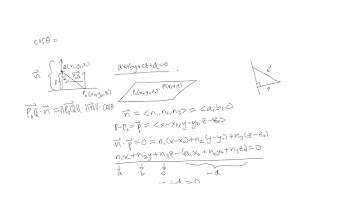 cosθ =
Q(x,y,z)
ax+by+cz+d=0.
n⃗
P₀(x₀,y₀,z₀) P(x,y,z)
P₀(x₀,y₀,z₀)
P₀Q⃗ · n⃗ = ||P₀Q⃗|| ||n⃗|| cosθ
n⃗ = <n₁, n₂, n₃> = <a, b, c>
P-P₀ = p⃗ = <x-x₀, y-y₀, z-z₀>
n⃗ · p⃗ = 0 = n₁(x-x₀)+n₂(y-y₀)+n₃(z-z₀)
n₁x+n₂y+n₃z-(n₁x₀+n₂y₀+n₃z₀)=0
a b c -d